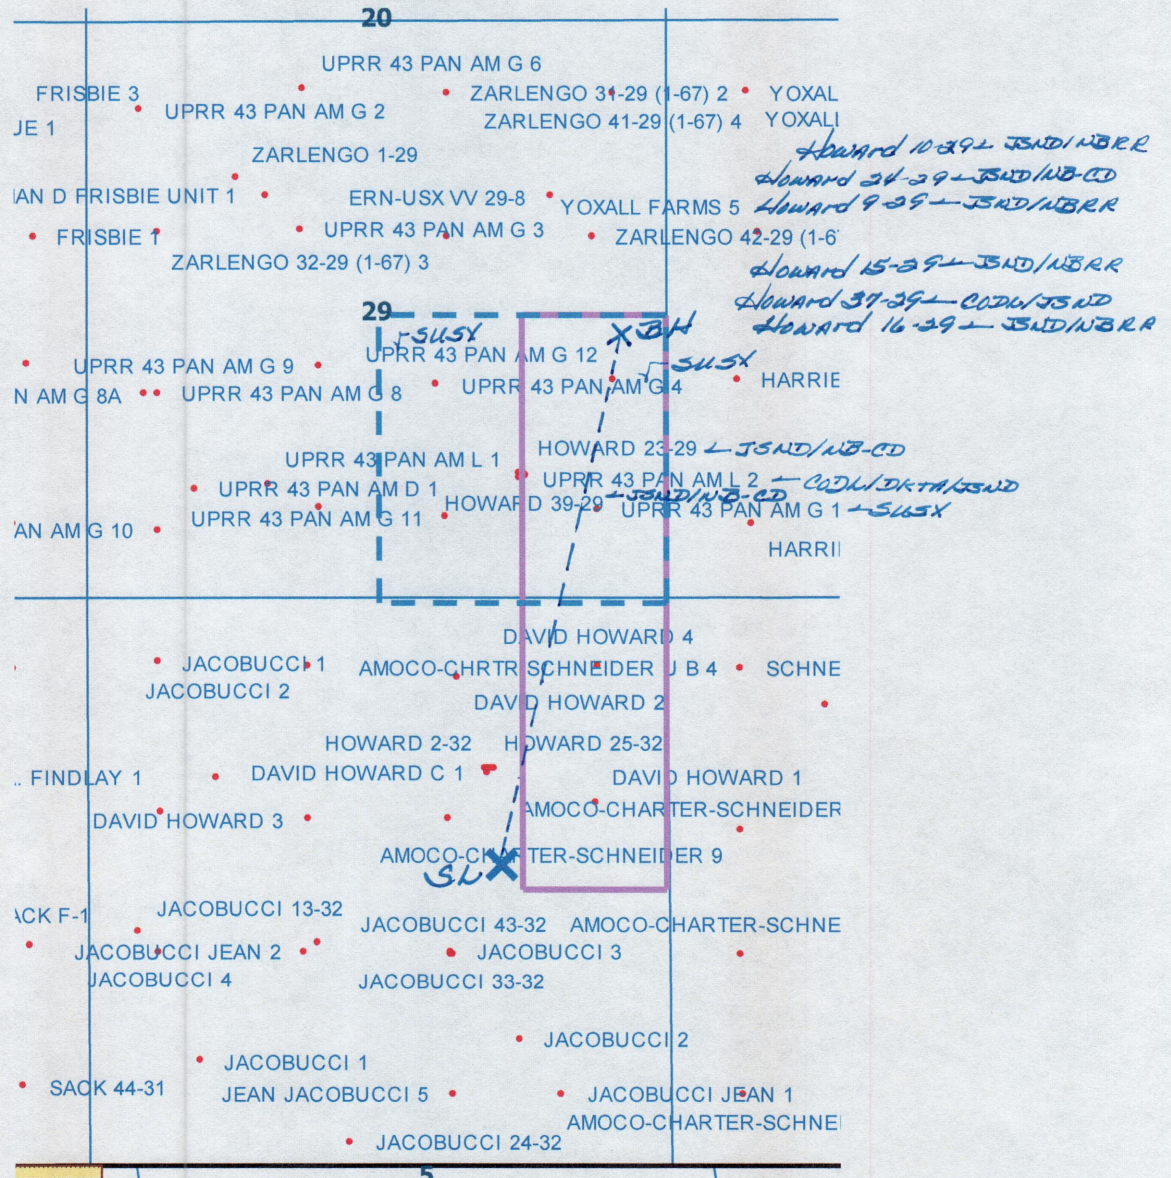 20
UPRR 43 PAN AM G 6
FRISBIE 3
ZARLENGO 31-29 (1-67) 2
YOXAL
UPRR 43 PAN AM G 2
JE 1
ZARLENGO 41-29 (1-67) 4
YOXALL
Howard 10-29 - JSND/NBRR
ZARLENGO 1-29
Howard 24-29 - JSND/NB-CD
AN D FRISBIE UNIT 1
ERN-USX VV 29-8
YOXALL FARMS 5
Howard 9-29 - JSND/NBRR
FRISBIE 1
UPRR 43 PAN AM G 3
ZARLENGO 42-29 (1-6
ZARLENGO 32-29 (1-67) 3
Howard 15-29 - JSND/NBRR
Howard 37-29 - CODL/JSND
29
Howard 16-29 - JSND/NBRR
SUSX
BH
UPRR 43 PAN AM G 12
SUSX
UPRR 43 PAN AM G 9
N AM G 8A
UPRR 43 PAN AM G 8
UPRR 43 PAN AM G 4
HARRIE
HOWARD 23-29 - JSND/NB-CD
UPRR 43 PAN AM L 1
UPRR 43 PAN AM L 2 - CODL/DKTA/JSND
UPRR 43 PAN AM D 1
HOWARD 39-29 - JSND/NB-CD
UPRR 43 PAN AM G 1 - SUSX
UPRR 43 PAN AM G 11
AN AM G 10
HARRI
DAVID HOWARD 4
JACOBUCCI 1
AMOCO-CHRTR SCHNEIDER U B 4
SCHNE
JACOBUCCI 2
DAVID HOWARD 2
HOWARD 2-32
HOWARD 25-32
FINDLAY 1
DAVID HOWARD C 1
DAVID HOWARD 1
AMOCO-CHARTER-SCHNEIDER
DAVID HOWARD 3
AMOCO-CHARTER-SCHNEIDER 9
SL
ACK F-1
JACOBUCCI 13-32
JACOBUCCI 43-32
AMOCO-CHARTER-SCHNE
JACOBUCCI JEAN 2
JACOBUCCI 3
JACOBUCCI 4
JACOBUCCI 33-32
JACOBUCCI 2
JACOBUCCI 1
SACK 44-31
JEAN JACOBUCCI 5
JACOBUCCI JEAN 1
AMOCO-CHARTER-SCHNEI
JACOBUCCI 24-32
5